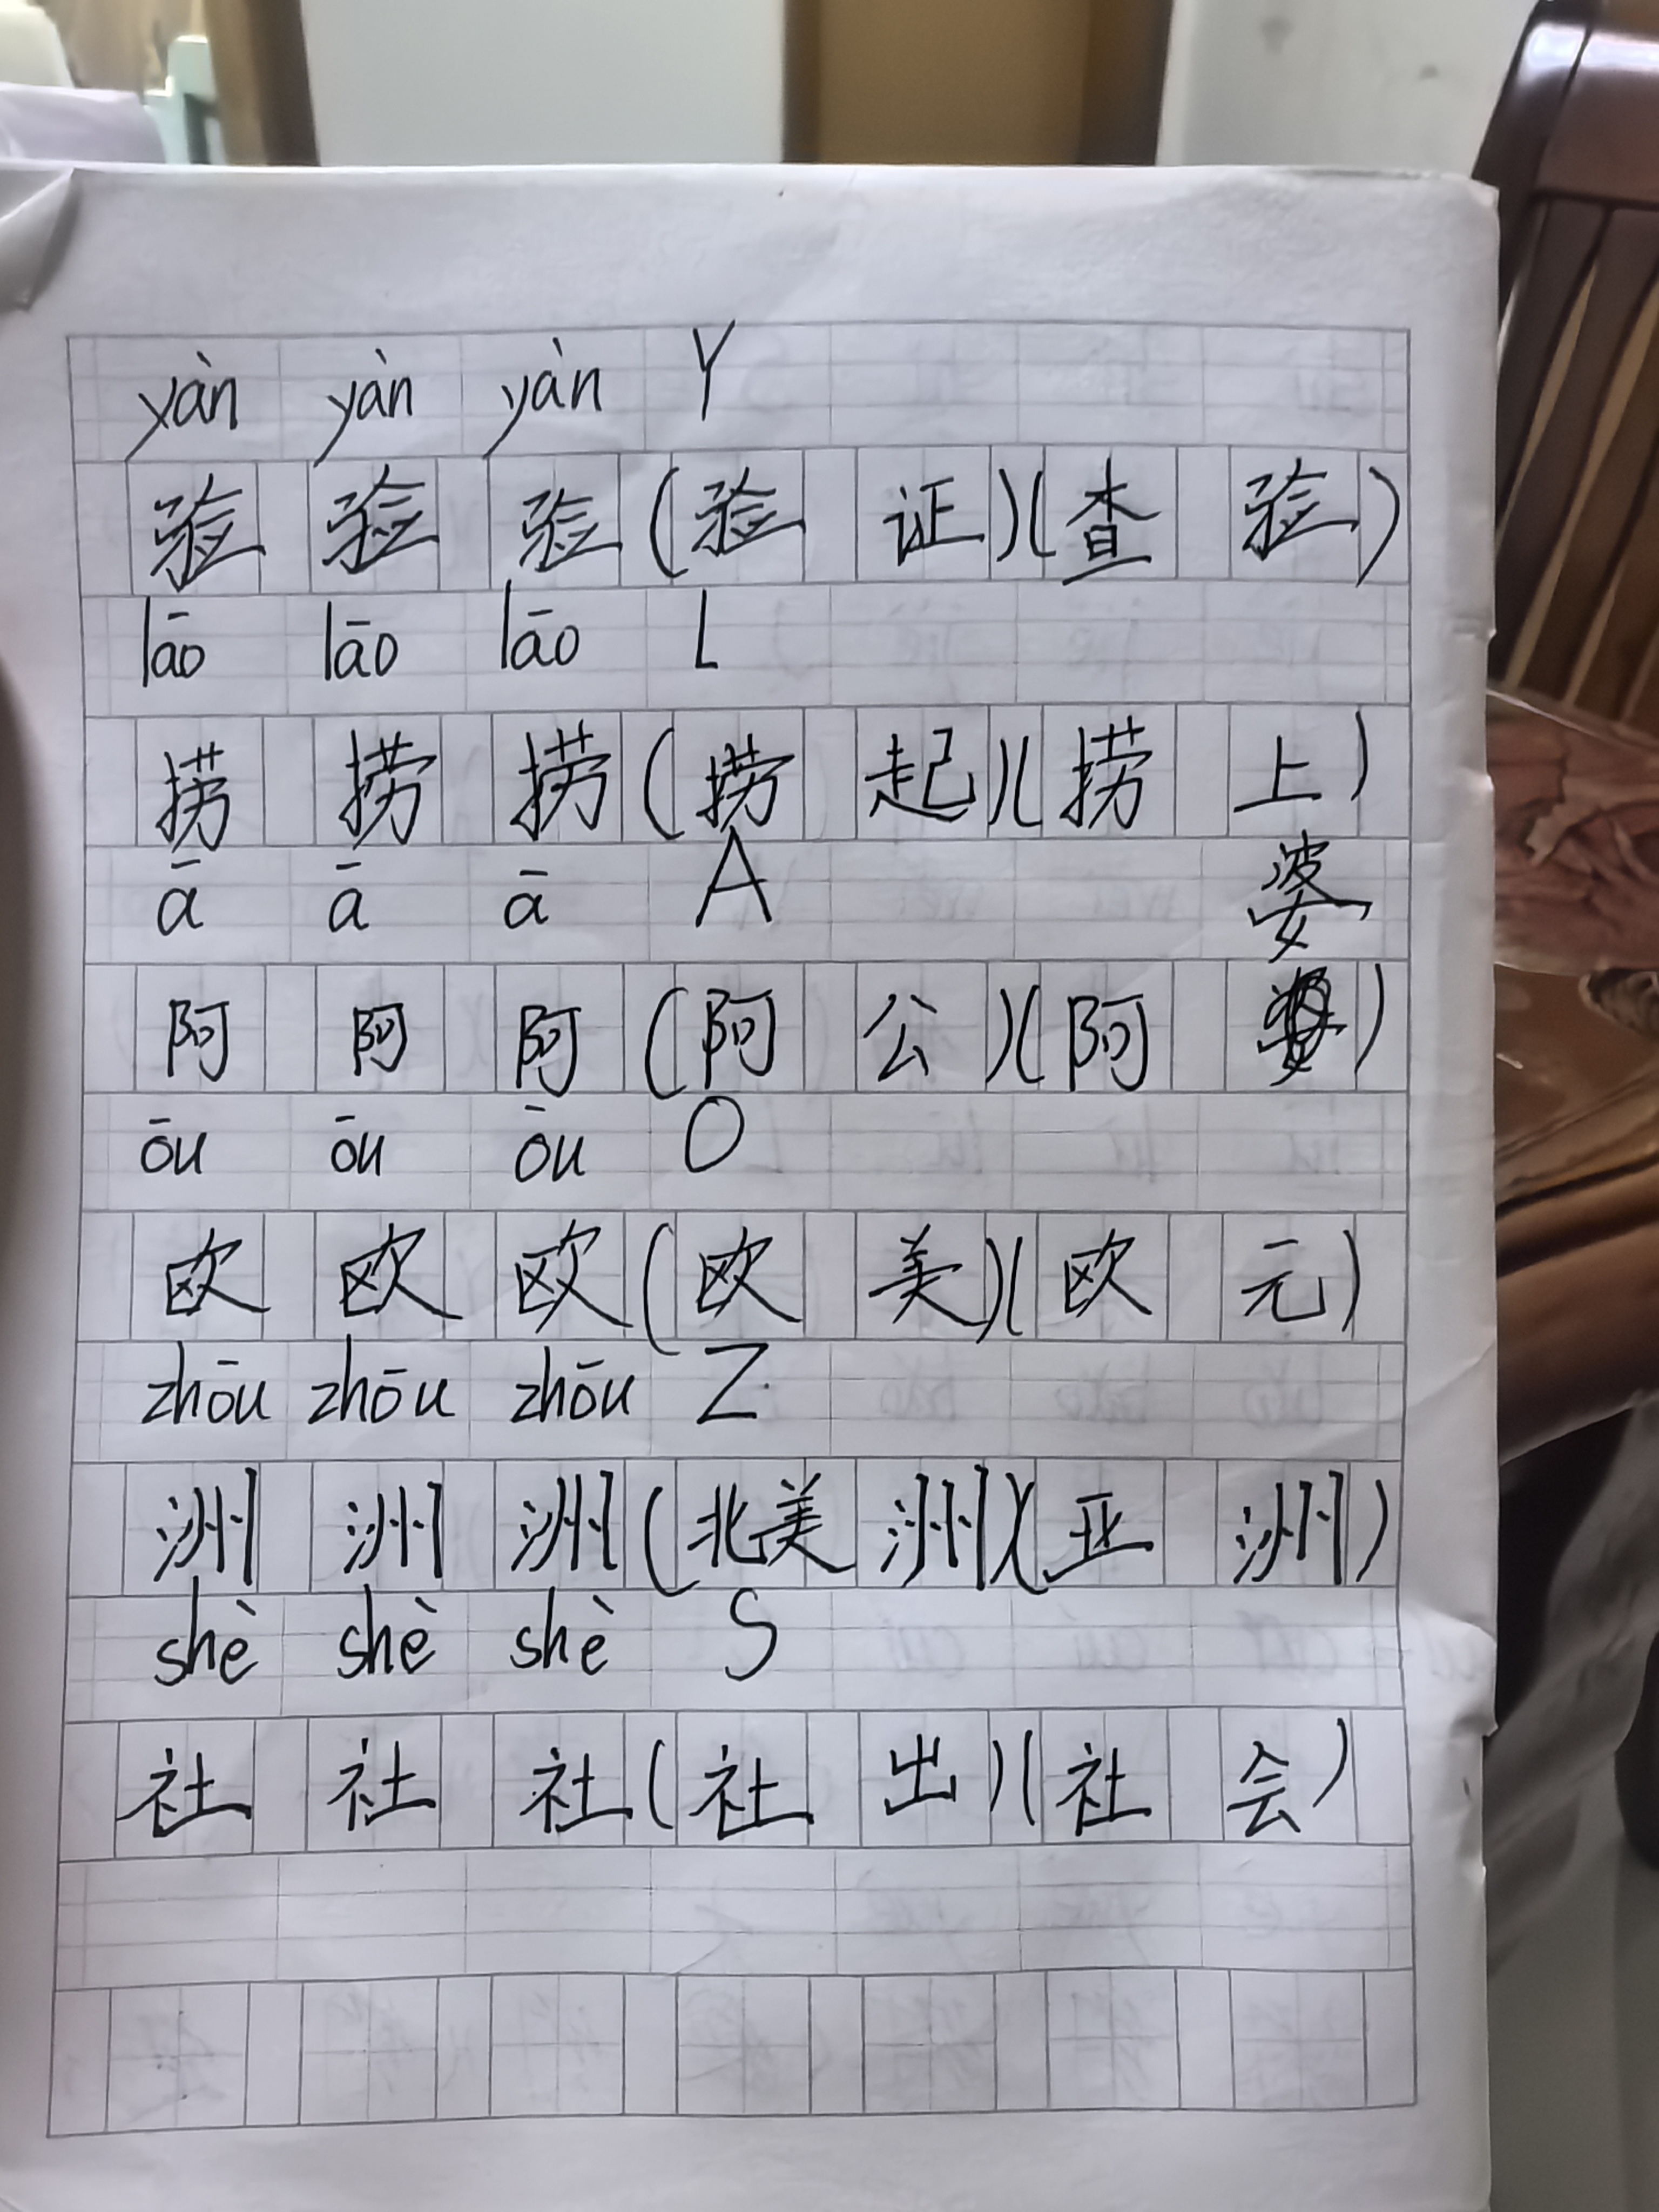 yàn yàn yàn Y
验 验 验 (验 证)(查 验)
lāo lāo lāo L
捞 捞 捞 (捞 起)(捞 上)
ā ā ā A
婆
阿 阿 阿 (阿 公)(阿 )
ōu ōu ōu O
欧 欧 欧 (欧 美)(欧 元)
zhōu zhōu zhōu Z
洲 洲 洲 (北美 洲)(亚 洲)
shè shè shè S
社 社 社 (社 出)(社 会)